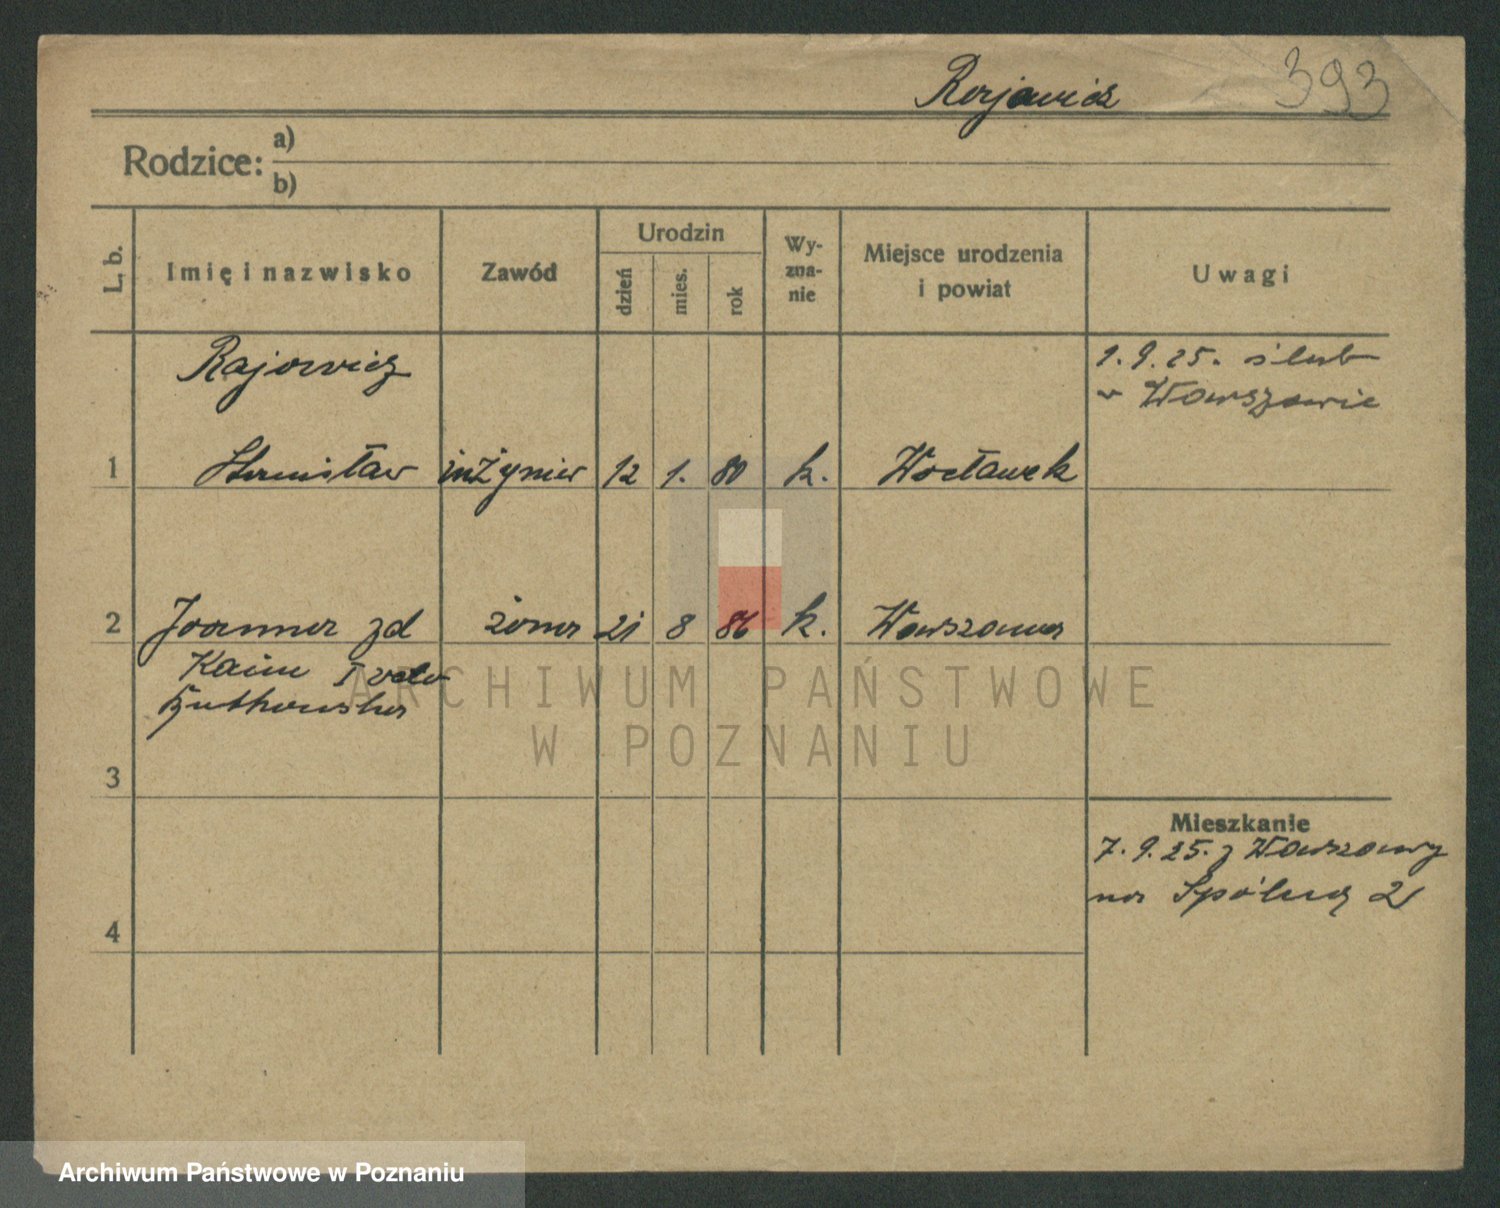 Rajowicz 393
Rodzice: a)
b)
L. b. Imię i nazwisko Zawód Urodzin dzień mies. rok Wy-zna-nie Miejsce urodzenia i powiat Uwagi
Rajowicz 1.9.25. ślub
w Warszawie
1 Stanisław inżynier 12 1. 80 k. Wocławek
2 Joanna zd żona 21 8 86 k. Warszawa
Kaim I voto
Rutkowska
ARCHIWUM PAŃSTWOWE
W POZNANIU
3
Mieszkanie
7.9.25. z Warszawy
na Spólną 21
4
Archiwum Państwowe w Poznaniu